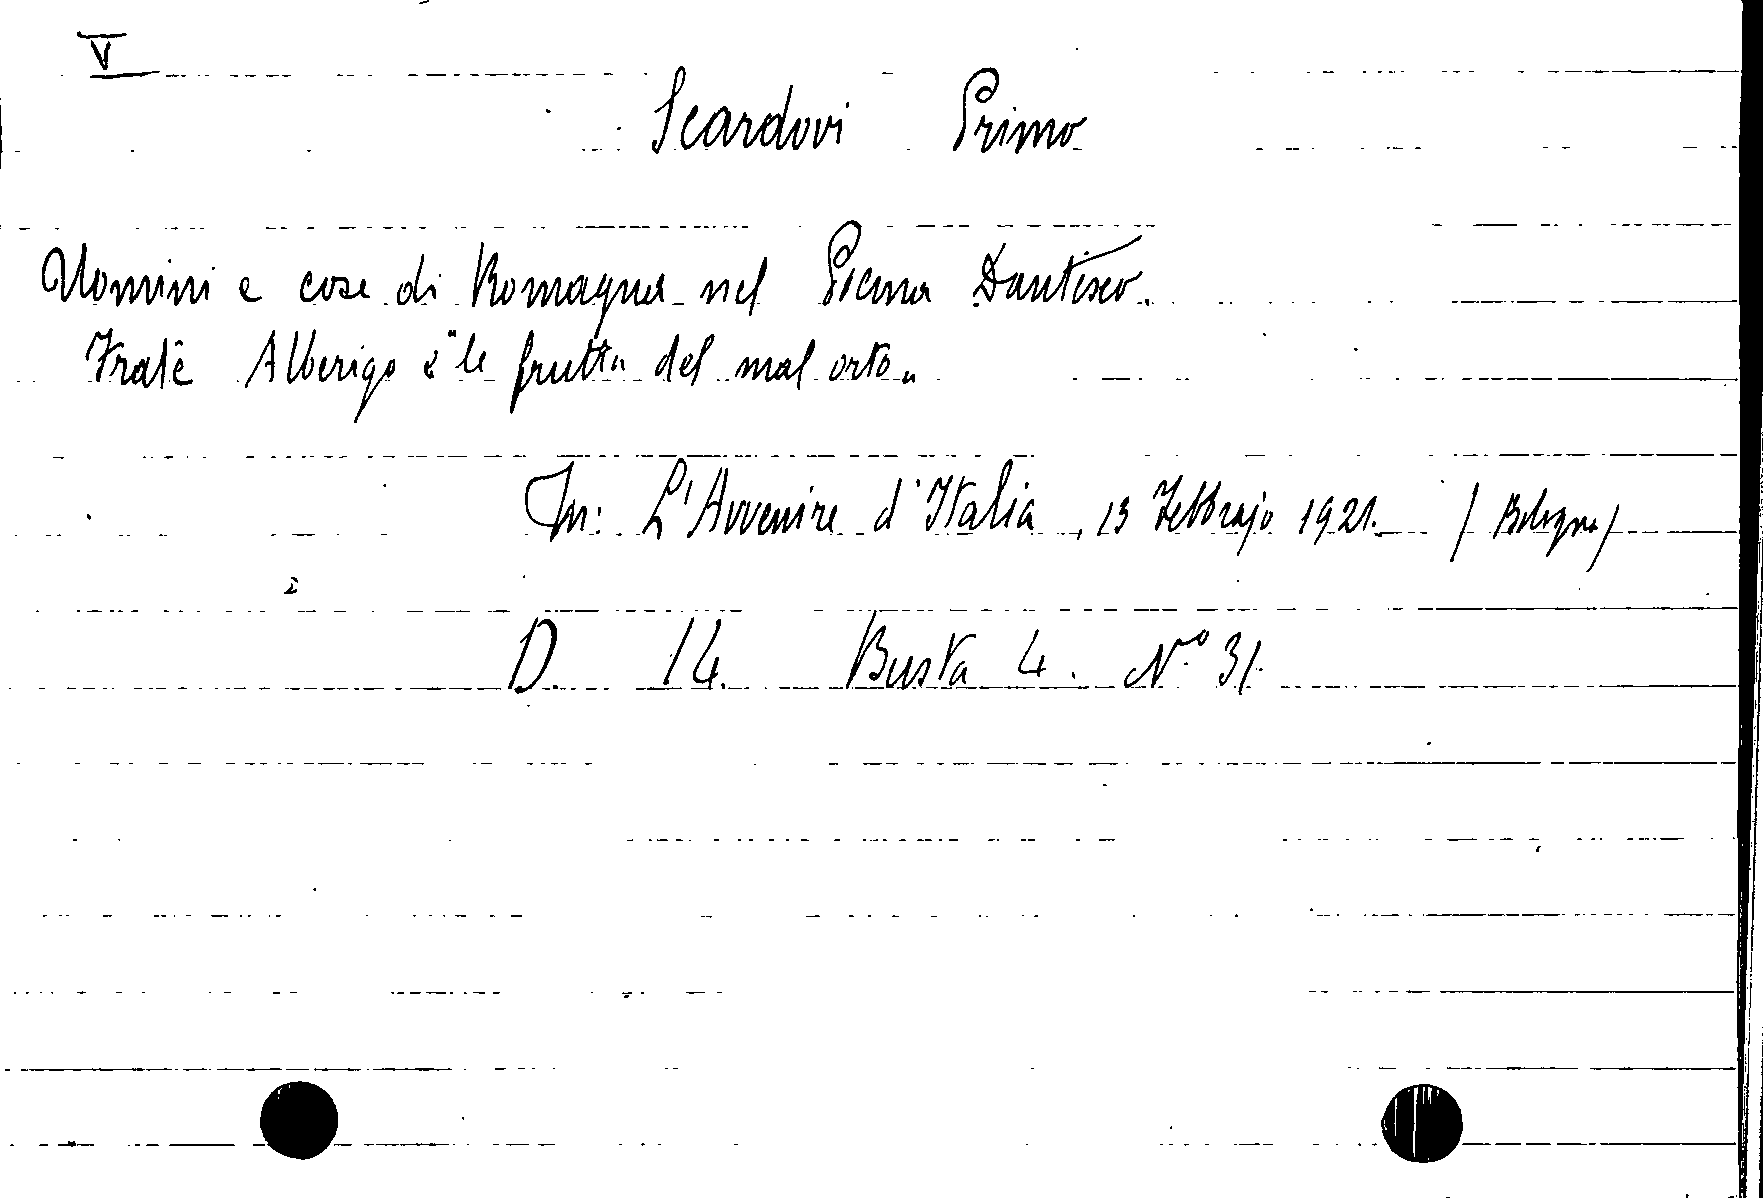 V
Scardovi Primo
Uomini e cose di Romagna nel Poema Dantesco.
Frate Alberigo e "le frutta del mal orto"
In: L'Avvenire d'Italia, 13 Febbrajo 1921. (Bologna)
D. 14. Busta 4. Nº 31.